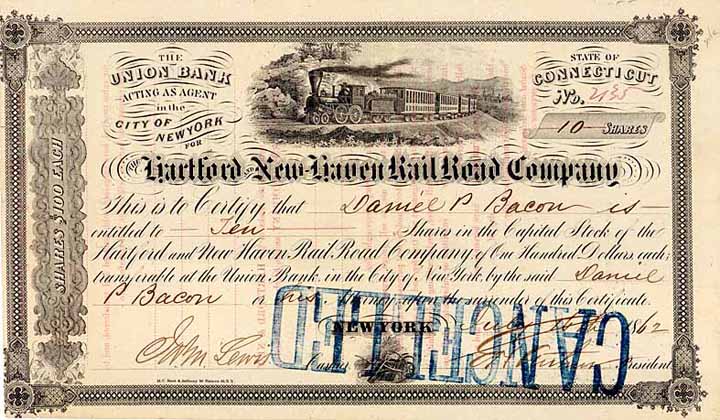 THE
UNION BANK
ACTING AS AGENT
in the
CITY OF
NEW YORK
FOR
STATE OF
CONNECTICUT
No. 2135
10 SHARES
SHARES $100 EACH
THE Hartford AND New-Haven Rail Road Company
This is to Certify that Daniel P. Bacon is
entitled to Ten Shares in the Capital Stock of the
Hartford and New Haven Rail Road Company, of One Hundred Dollars each;
transferable at the Union Bank, in the City of New York by the said Daniel
P Bacon or his Attorney upon the surrender of this Certificate.
NEW YORK July 1862
Wm. Lewis Cashier President
CANCELLED